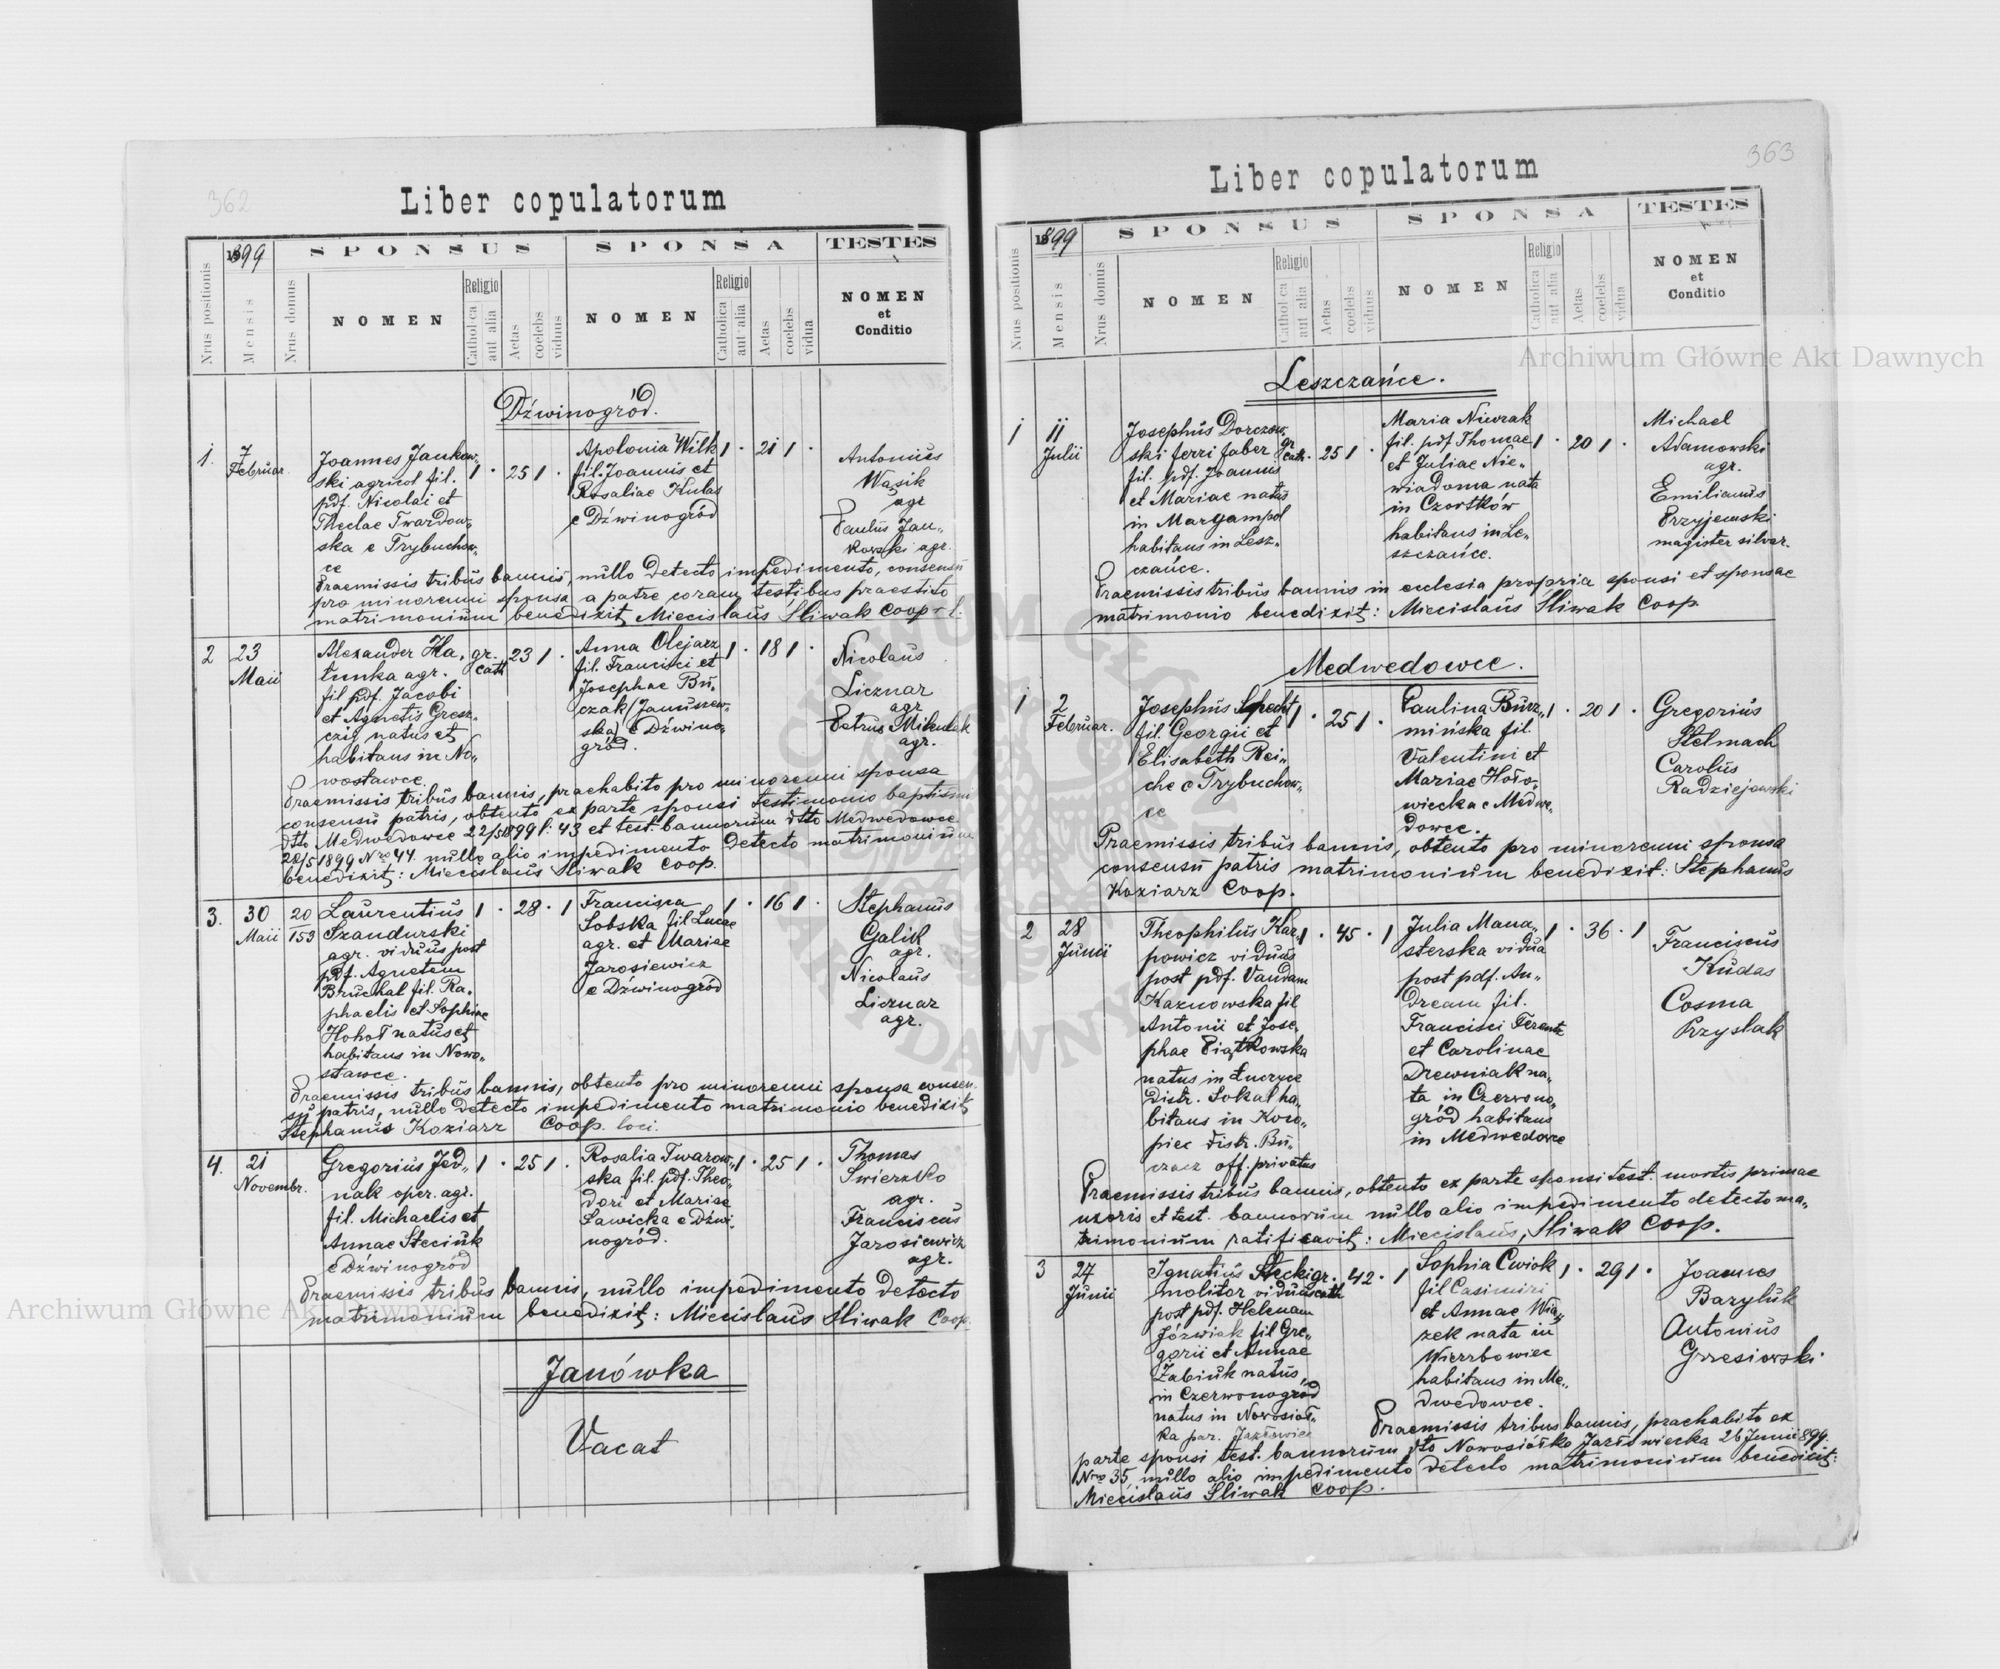 362
Liber copulatorum
1899
SPONSUS
SPONSA
TESTES
Nrus positionis
Mensis
Nrus domus
NOMEN
Religio
Catholica
aut alia
Aetas
coelebs
viduus
NOMEN
Religio
Catholica
aut alia
Aetas
coelebs
vidua
NOMEN
et
Conditio
Dźwinogród.
1. 7 Februar.
Joannes Jankow„
ski agricol fil.
pdf. Nicolai et
Theclae Twardow„
ska e Trybuchow„
ce
1 · 25 1 ·
Apolonia Wilk
fil. Joannis et
Rosaliae Kulas
e Dźwinogród
1 · 21 1 ·
Antonius
Wąsik
agr
Paulus Jan„
kowski agr.
Praemissis tribus bannis, nullo detecto impedimento, consensu
pro minorenni sponsa a patre coram testibus praestito
matrimonium benedixit Miecislaus Śliwak Coop
2 23 Maii
Alexander Ha„
tunka agr.
fil pdf. Jacobi
et Agnetis Gresz„
czig natus et
habitans in No„
wostawce
gr. cath 23 1 ·
Anna Olejarz
fil. Francisci et
Josephae Bu„
czak (Januszew„
ska) e Dźwino„
gród.
1 · 18 1 ·
Nicolaus
Licznar
agr
Petrus Mikulak
agr.
Praemissis tribus bannis, praehabito pro minorenni sponsa
consensu patris, obtento ex parte sponsi testimonio baptismi
dtto Medwedowce 22/5 1899 l: 43 et test. bannorum dtto Medwedowce
28/5 1899 Nro 44. nullo alio impedimento detecto matrimonium
benedixit: Miecislaus Śliwak Coop.
3. 30 Maii
20
153
Laurentius
Szandurski
agr. viduus post
pdf. Agnetem
Bruchal fil. Ra„
phaelis et Sophiae
Hohoł natus et
habitans in Nowo„
stawce.
1 · 28 · 1
Francisca
Sobska fil Lucae
agr. et Mariae
Jarosiewicz
e Dźwinogród
1 · 16 1 ·
Stephanus
Galik
agr.
Nicolaus
Licznar
agr.
Praemissis tribus bannis, obtento pro minorenni sponsa consen„
su patris, nullo detecto impedimento matrimonio benedixit
Stephanus Koziarz Coop. loci.
4. 21 Novembr.
Gregorius Jed„
nak oper. agr.
fil. Michaelis et
Annae Steciuk
e Dźwinogród
1 · 25 1 ·
Rosalia Twarow„
ska fil. pdf. Theo„
dori et Mariae
Sawicka e Dźwi„
nogród.
1 · 25 1 ·
Thomas
Swierzko
agr.
Franciscus
Jarosiewicz
agr.
Praemissis tribus bannis, nullo impedimento detecto
matrimonium benedixit: Miecislaus Śliwak Coop.
Janówka
Vacat
363
Liber copulatorum
1899
SPONSUS
SPONSA
TESTES
Nrus positionis
Mensis
Nrus domus
NOMEN
Religio
Catholica
aut alia
Aetas
coelebs
viduus
NOMEN
Religio
Catholica
aut alia
Aetas
coelebs
vidua
NOMEN
et
Conditio
Leszczańce.
1 11 Julii
Josephus Dorczow„
ski ferri faber
fil. pdf. Joannis
et Mariae natus
in Maryampol
habitans in Lesz„
czańce.
gr cath. 25 1 ·
Maria Niwrak
fil. pdf Thomae
et Juliae Nie„
wiadoma nata
in Czortków
habitans in Le„
szczańce.
1 · 20 1 ·
Michael
Adamowski
agr.
Emilianus
Przyjemski
magister silvar.
Praemissis tribus bannis in ecclesia propria sponsi et sponsae
matrimonio benedixit: Miecislaus Śliwak Coop.
Medwedowce.
1 2 Februar.
Josephus Specht
fil. Georgii et
Elisabeth Rei„
che e Trybuchow„
ce
1 · 25 1 ·
Paulina Burz„
mińska fil.
Valentini et
Mariae Hoło„
wiecka e Medwe„
dowce.
1 · 20 1 ·
Gregorius
Stelmach
Carolus
Radziejowski
Praemissis tribus bannis, obtento pro minorenni sponsa
consensu patris matrimonium benedixit: Stephanus
Koziarz Coop.
2 28 Junii
Theophilus Kar„
powicz viduus
post pdf. Vandam
Kaznowska fil
Antonii et Jose„
phae Piątkowska
natus in Łuczyce
distr. Sokal ha„
bitans in Koro„
piec distr. Bu„
czacz off. privatus
1 · 45 · 1
Julia Mana„
sterska vidua
post pdf. An„
dream fil.
Francisci Ferentz
et Carolinae
Drewniak na„
ta in Czerwono„
gród habitans
in Medwedowce
1 · 36 · 1
Franciscus
Kudas
Cosma
Przyslak
Praemissis tribus bannis, obtento ex parte sponsi test. mortis primae
uxoris et test. bannorum nullo alio impedimento detecto ma„
trimonium ratificavit: Miecislaus Śliwak Coop.
3 27 Junii
Ignatius Stecki
molitor viduus
post pdf. Helenam
Józwiak fil Gre„
gorii et Annae
Zabiuk natus
in Czerwonogrod
natus in Nowosioł„
ka par. Jazłowiec
gr. cath 42 · 1
Sophia Cwiok
fil Casimiri
et Annae Wią„
zek nata in
Wierzbowiec
habitans in Me„
dwedowce.
1 · 29 1 ·
Joannes
Baryluk
Antonius
Grzesiowski
Praemissis tribus bannis, praehabito ex
parte sponsi test. bannorum dto Nowosiółka Jazłowiecka 26 Junii 899.
Nro 35, nullo alio impedimento detecto matrimonium benedixit:
Miecislaus Śliwak Coop.
Archiwum Główne Akt Dawnych
Archiwum Główne Akt Dawnych